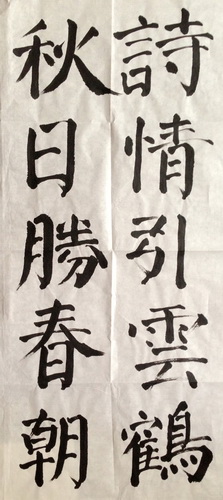 詩情引雲鶴
秋日勝春朝